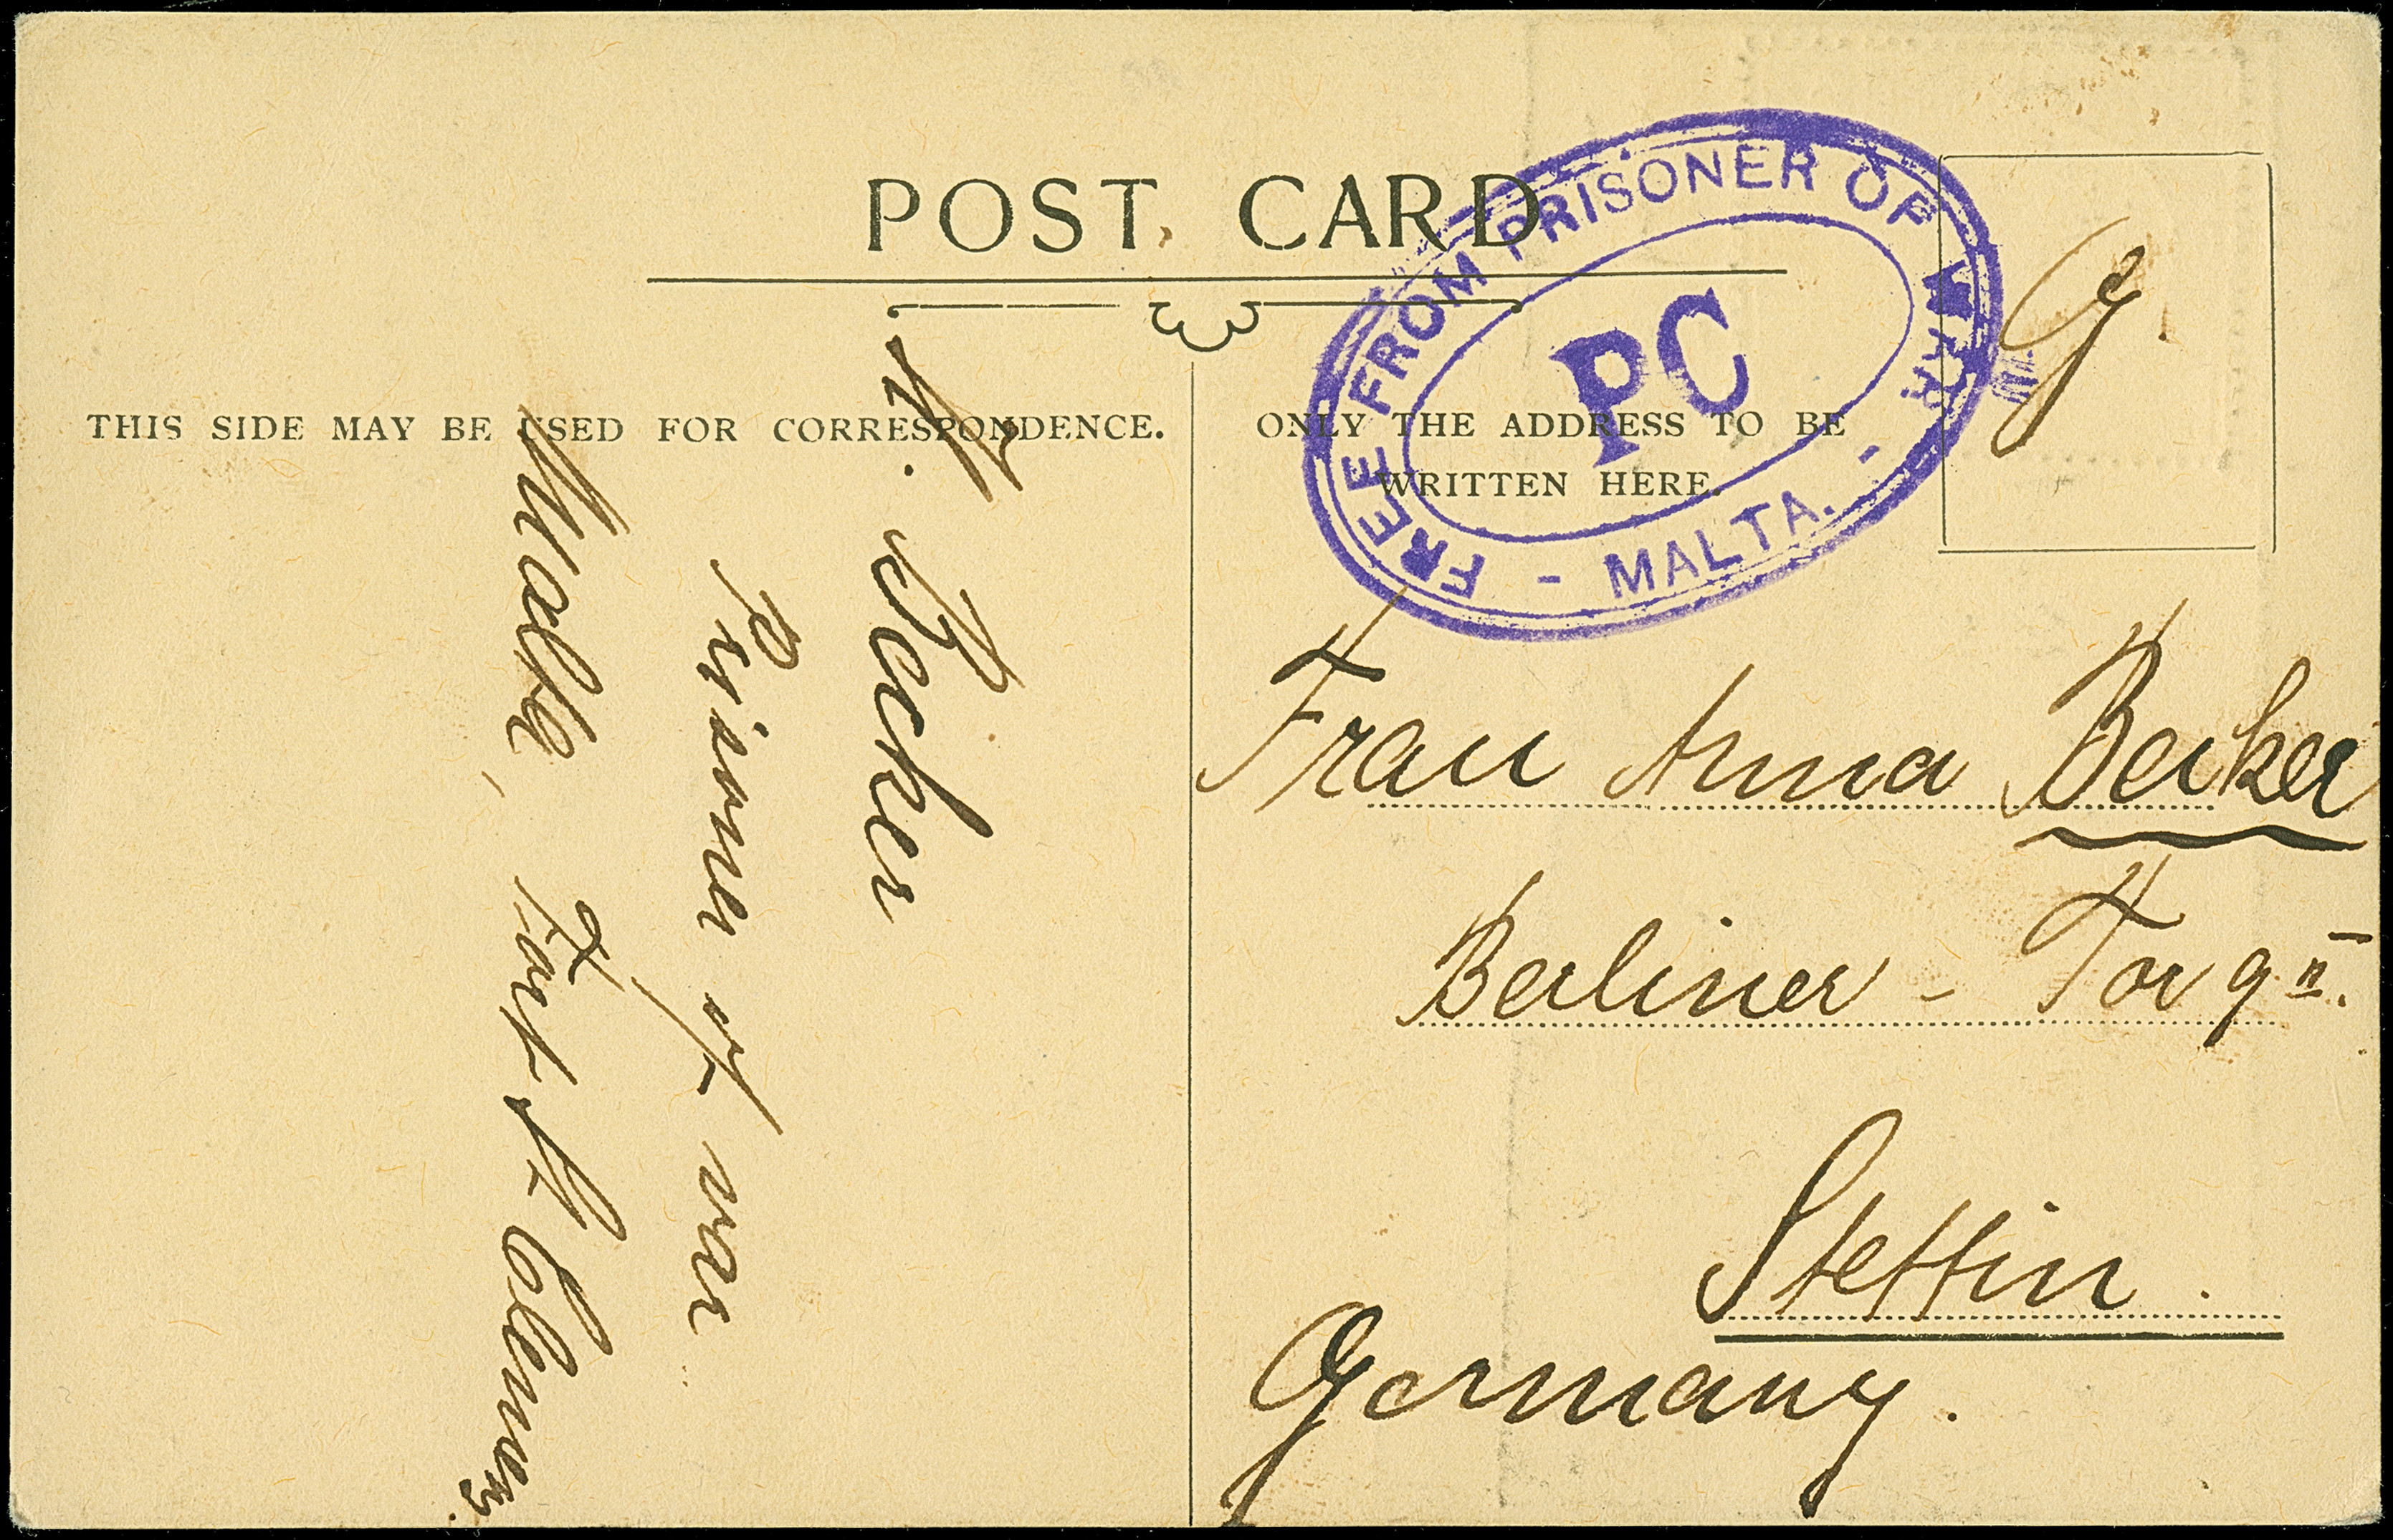 POST CARD
FREE FROM PRISONER OF WAR
PC
- MALTA. -
g.
THIS SIDE MAY BE USED FOR CORRESPONDENCE.
ONLY THE ADDRESS TO BE
WRITTEN HERE.
Becker
Prisoner of war
Malta, Fort St Clemens.
Frau Anna Becker
Berliner - Tor 9 II.
Stettin.
Germany.